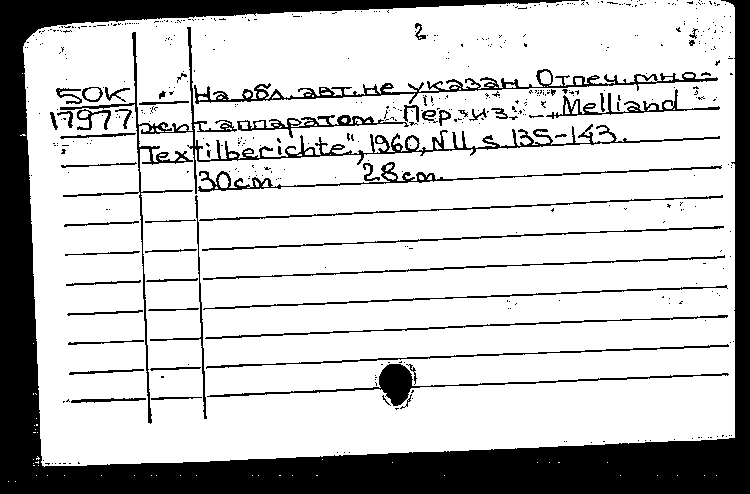 2
50К На обл. авт. не указан. Отпеч. мно-
17977 жит. аппаратом. Пер. из: „Melliand
Textilberichte", 1960, N11, s. 135-143.
30 ст. 28 см.